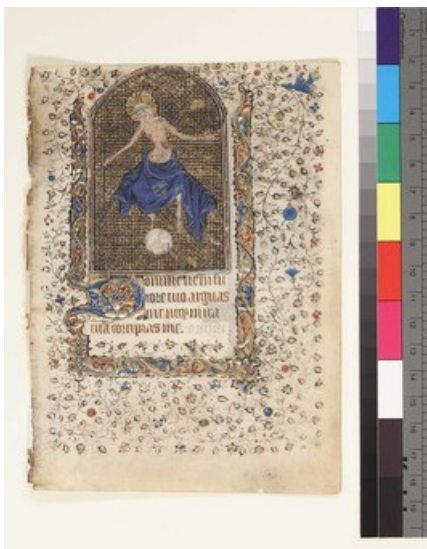 Domine ne in fu
rore tuo arguas
me neq in ira
tua corripias me.